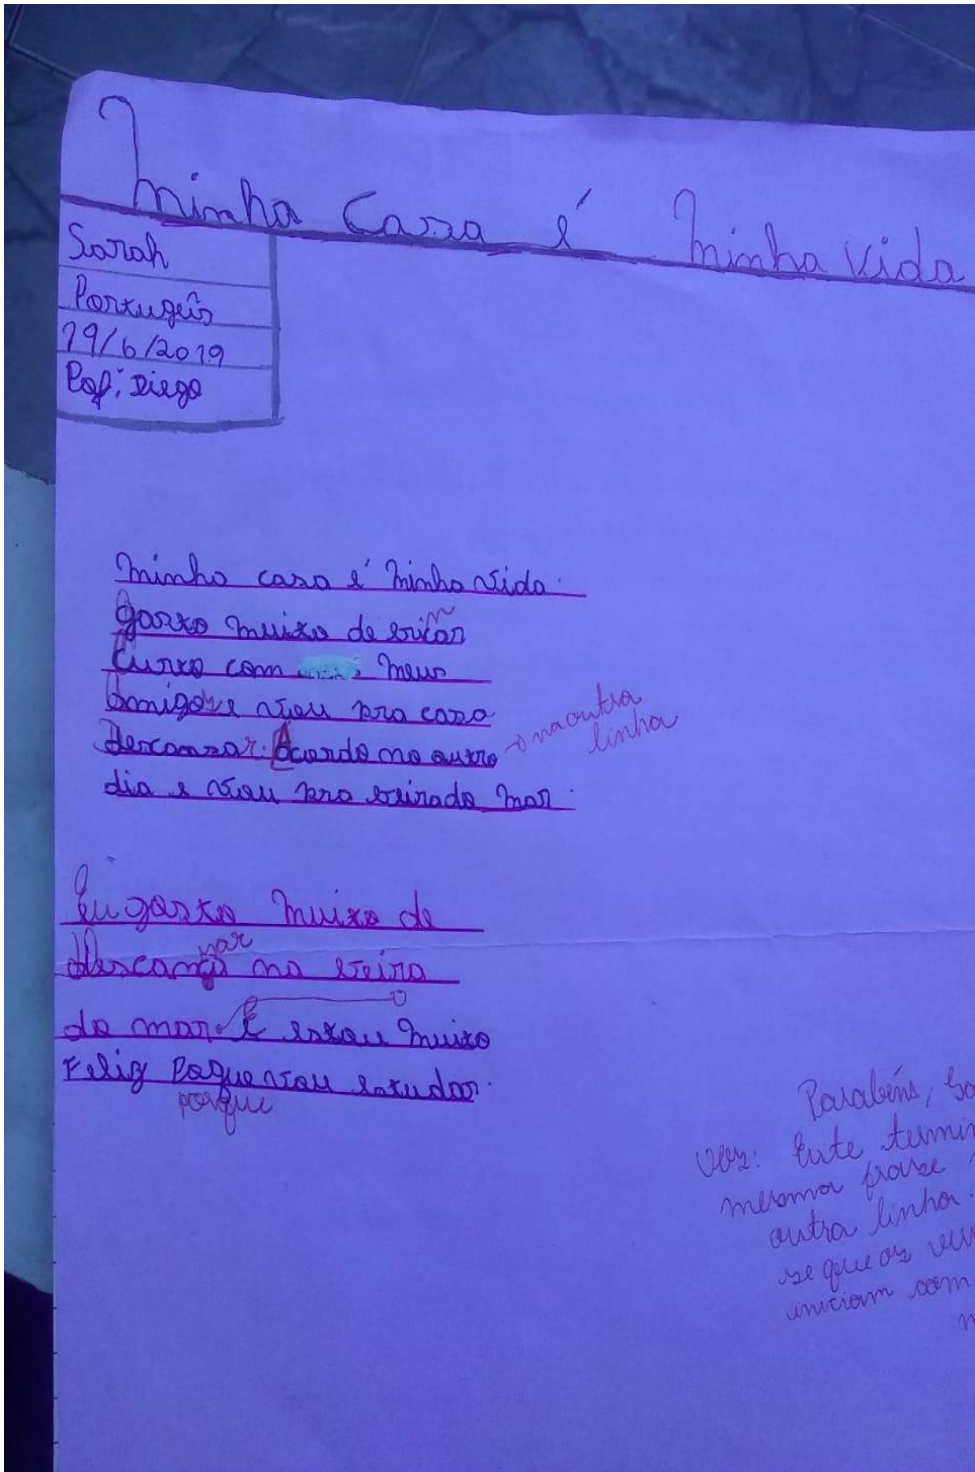 Minha Casa é Minha vida
Sarah
Portugeis
19/6/2019
Pof: Diego
Minha casa é Minha vida.
gosto muito de bricar
n
Curto com Meus
amigos e vou pra casa
descansar. Acordo no outro
na outra
linha
dia e vou pra beira do Mar.
Eu gosto Muito de
descan na beira
sar
do mar. E estou Muito
Feliz Poque vou estudar.
porque
Parabéns,
Obs: Evite
mesma frase
outra linha.
se que os
iniciam com